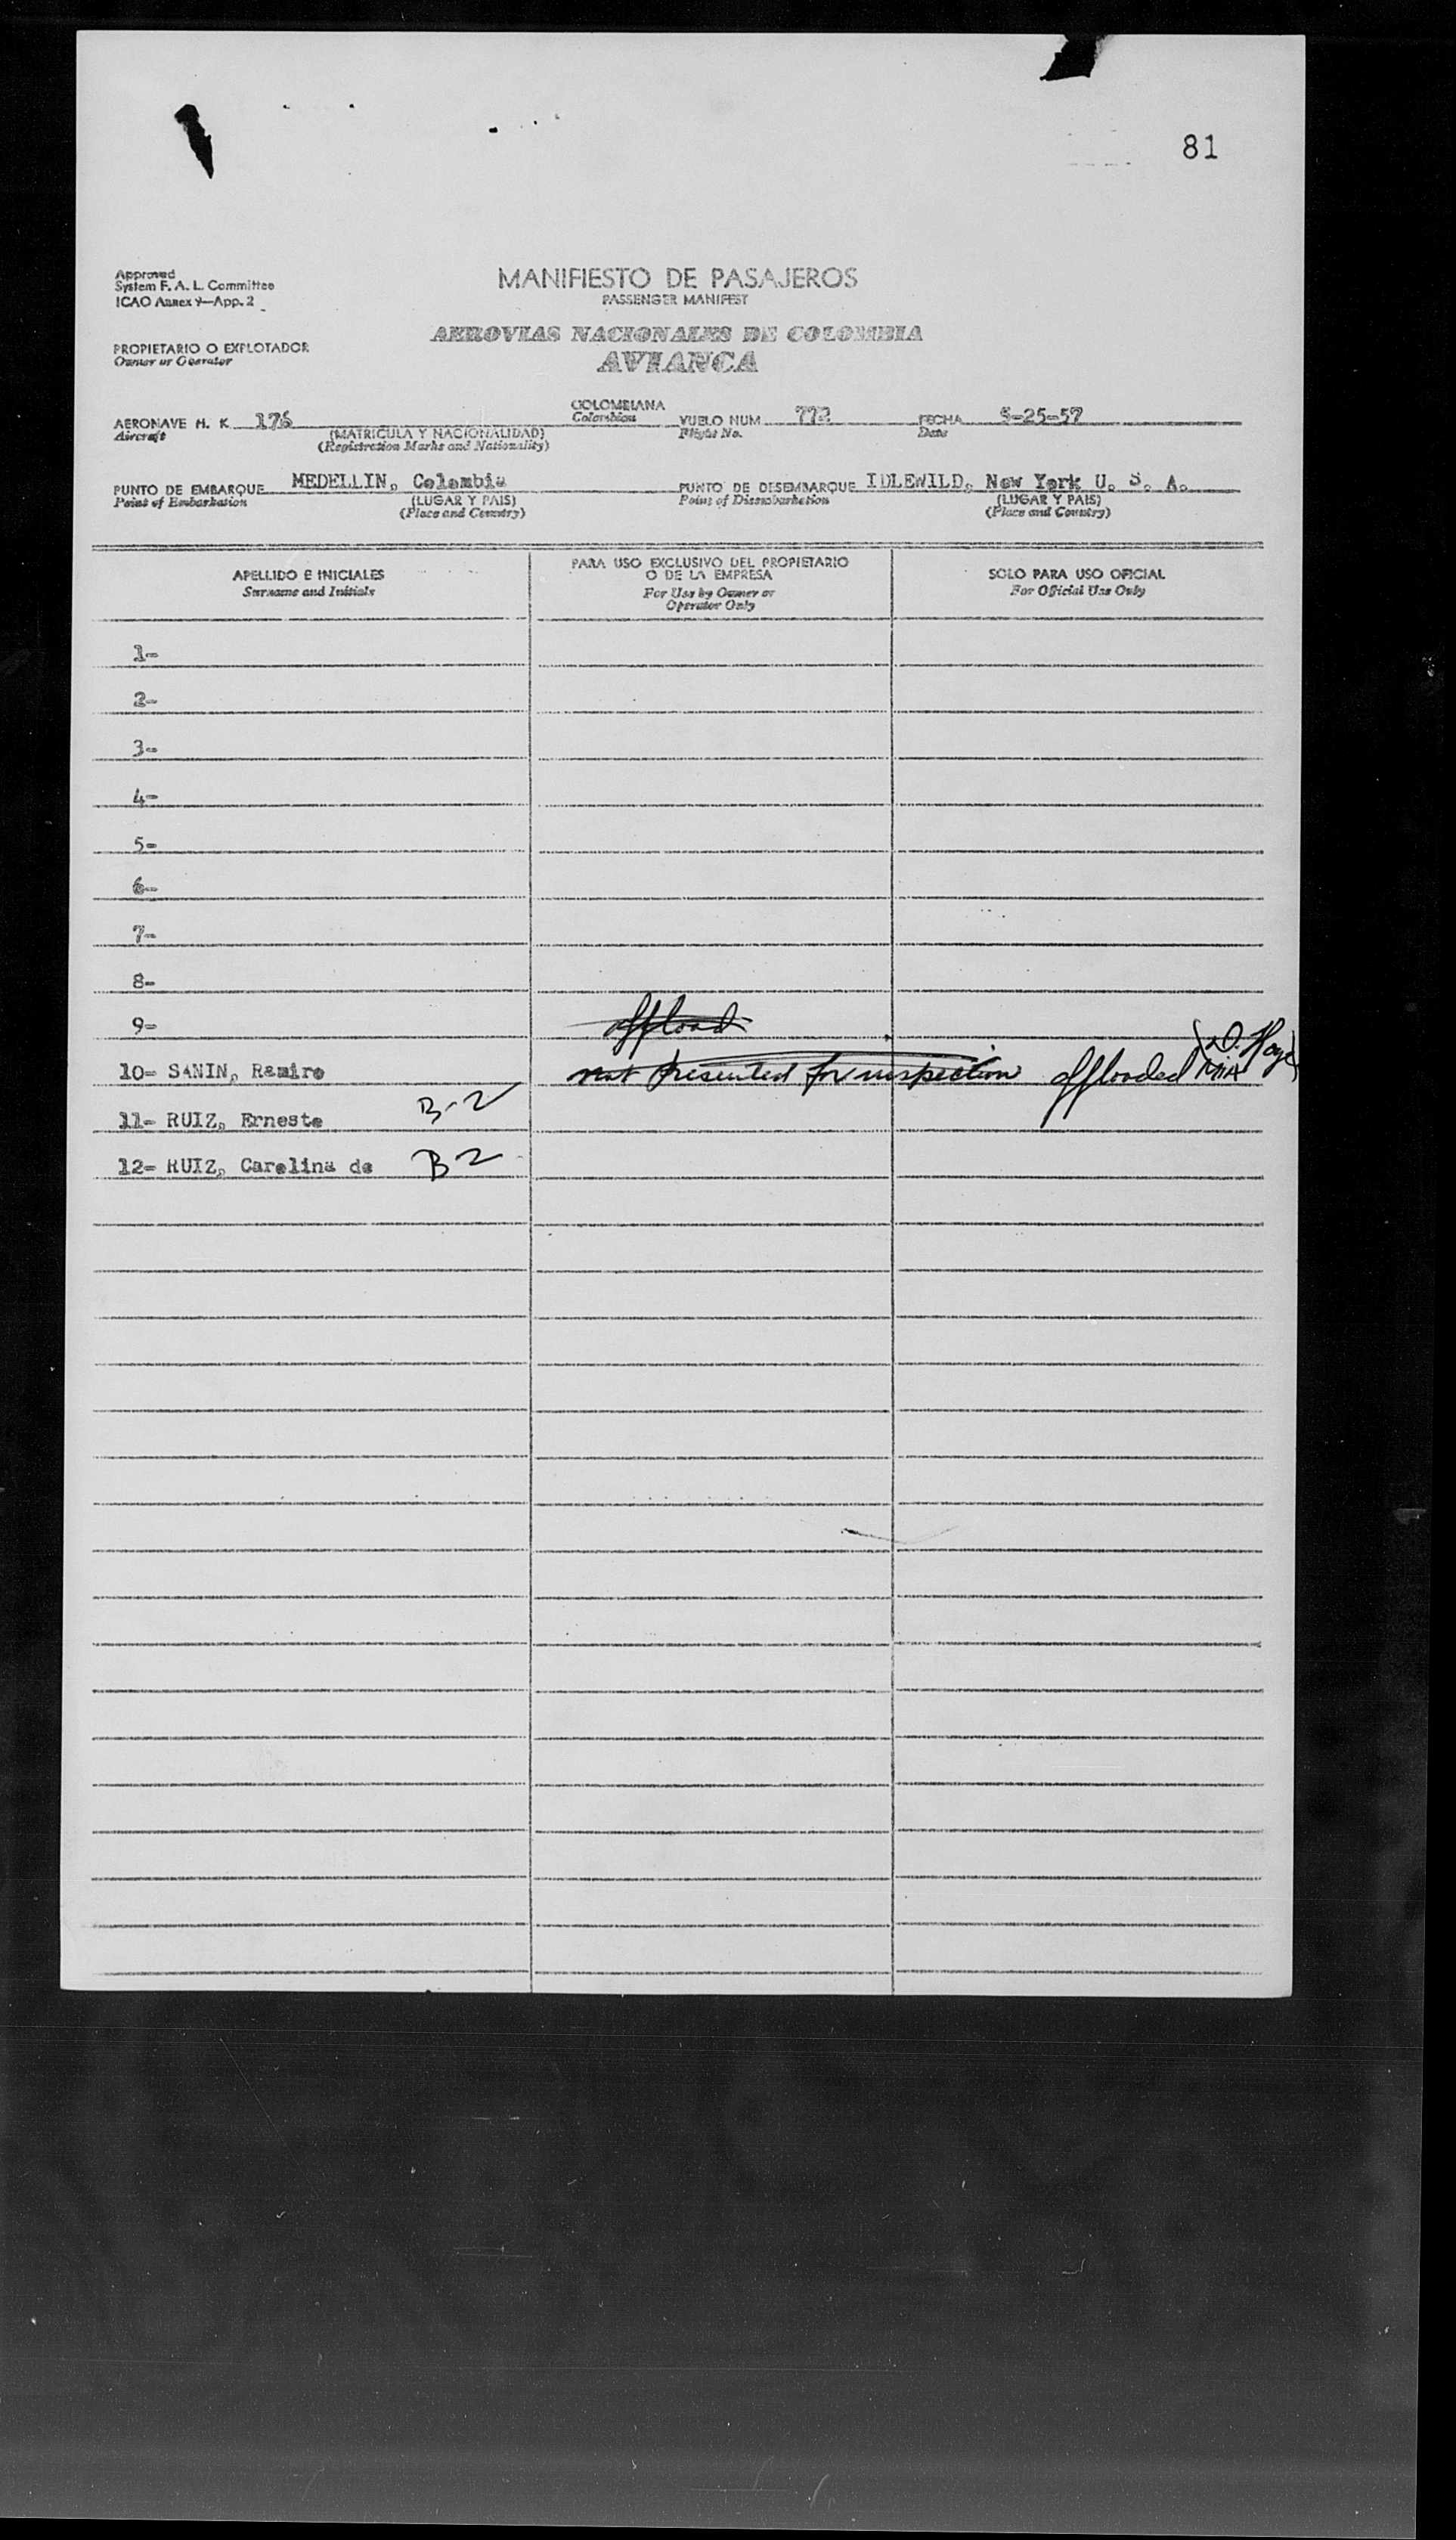 81
Approved
System F. A. L. Committee
ICAO Annex 9—App. 2
MANIFIESTO DE PASAJEROS
PASSENGER MANIFEST
AEROVIAS NACIONALES DE COLOMBIA
AVIANCA
PROPIETARIO O EXPLOTADOR
Owner or Operator
AERONAVE H. K. 176
Aircraft
(MATRICULA Y NACIONALIDAD)
(Registration Marks and Nationality)
COLOMBIANA
Colombian
VUELO NUM 772
Flight No.
FECHA 5-25-57
Date
PUNTO DE EMBARQUE MEDELLIN, Colombia
Point of Embarkation
(LUGAR Y PAIS)
(Place and Country)
PUNTO DE DESEMBARQUE IDLEWILD, New York U. S. A.
Point of Disembarkation
(LUGAR Y PAIS)
(Place and Country)
APELLIDO E INICIALES
Surname and Initials
PARA USO EXCLUSIVO DEL PROPIETARIO
O DE LA EMPRESA
For Use by Owner or
Operator Only
SOLO PARA USO OFICIAL
For Official Use Only
1-
2-
3-
4-
5-
6-
7-
8-
9- offload
10- SANIN, Ramiro not presented for inspection offloaded MIA
11- RUIZ, Ernesto B-2
12- RUIZ, Carolina de B2